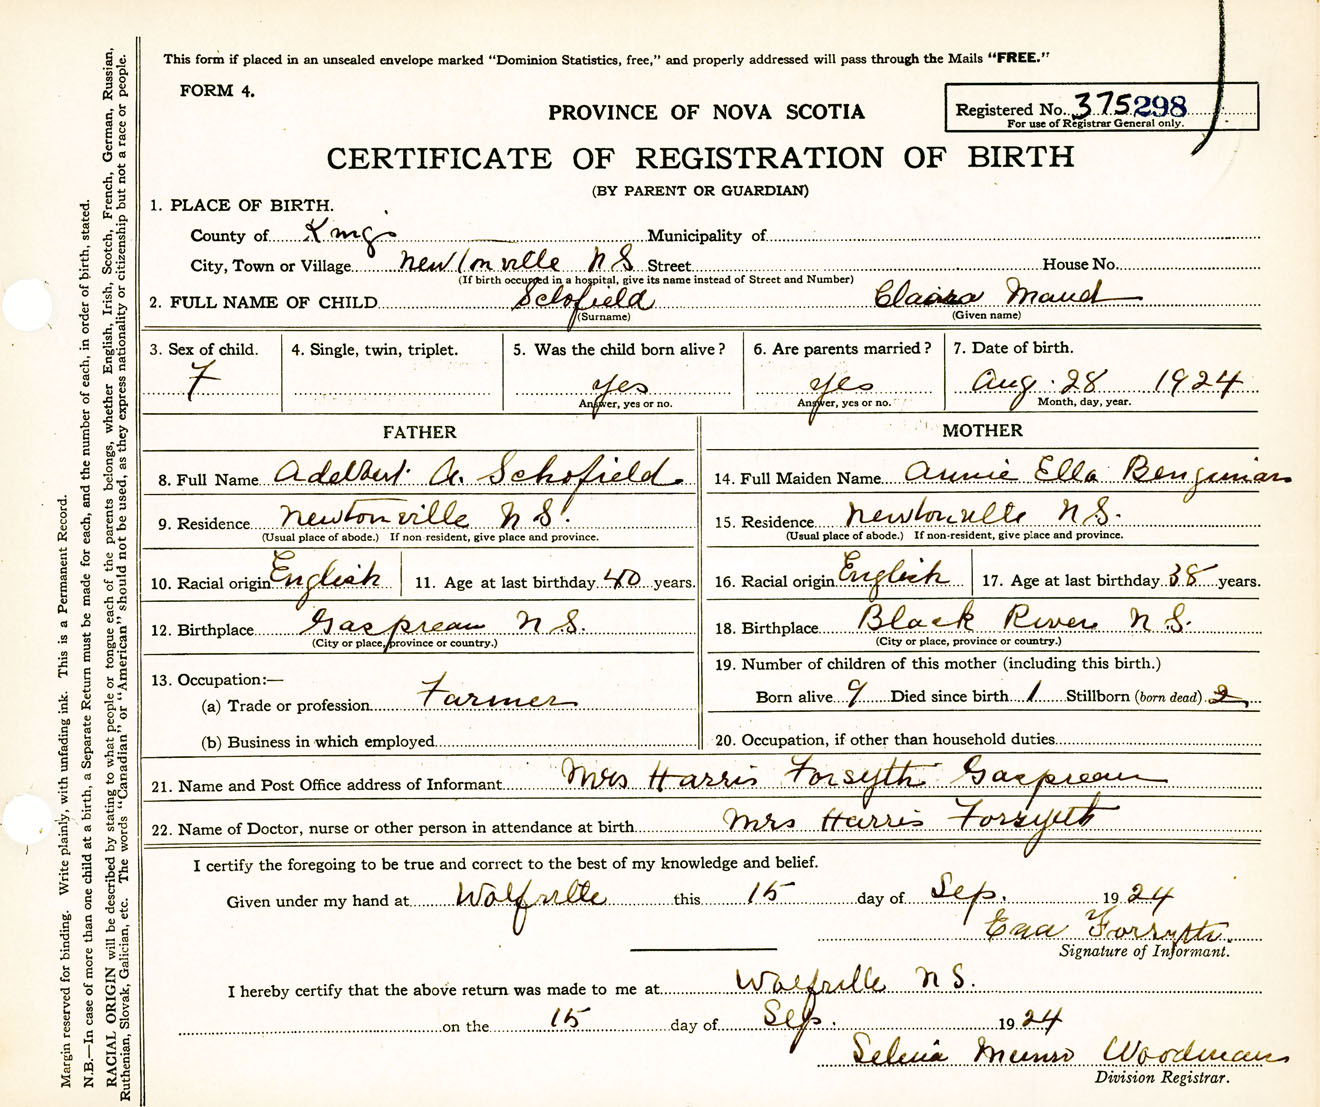 This form if placed in an unsealed envelope marked "Dominion Statistics, free," and properly addressed will pass through the Mails "FREE."
FORM 4.
PROVINCE OF NOVA SCOTIA
Registered No. 375298
For use of Registrar General only.
CERTIFICATE OF REGISTRATION OF BIRTH
(BY PARENT OR GUARDIAN)
1. PLACE OF BIRTH.
County of Kings Municipality of
City, Town or Village Newtonville N S Street House No.
(If birth occurred in a hospital, give its name instead of Street and Number)
2. FULL NAME OF CHILD Schofield Claara Maud
(Surname) (Given name)
3. Sex of child. 4. Single, twin, triplet. 5. Was the child born alive? 6. Are parents married? 7. Date of birth.
F yes yes Aug. 28 1924
Answer, yes or no. Answer, yes or no. Month, day, year.
FATHER MOTHER
8. Full Name Adelbert A. Schofield 14. Full Maiden Name Annie Ella Benjiman
9. Residence Newtonville N S. 15. Residence Newtonville N S.
(Usual place of abode.) If non-resident, give place and province. (Usual place of abode.) If non-resident, give place and province.
10. Racial origin English 11. Age at last birthday 40 years. 16. Racial origin English 17. Age at last birthday 38 years.
12. Birthplace Gaspreau N S. 18. Birthplace Black River N S.
(City or place, province or country.) (City or place, province or country.)
13. Occupation:— 19. Number of children of this mother (including this birth.)
(a) Trade or profession Farmer Born alive 9 Died since birth 1 Stillborn (born dead) 2
(b) Business in which employed 20. Occupation, if other than household duties
21. Name and Post Office address of Informant Mrs Harris Forsyth Gaspreau
22. Name of Doctor, nurse or other person in attendance at birth Mrs Harris Forsyth
I certify the foregoing to be true and correct to the best of my knowledge and belief.
Given under my hand at Wolfville this 15 day of Sep. 1924
Ena Forsyth.
Signature of Informant.
I hereby certify that the above return was made to me at Wolfville N S.
on the 15 day of Sep. 1924
Selina Munro Woodman
Division Registrar.
Margin reserved for binding. Write plainly, with unfading ink. This is a Permanent Record.
N.B.—In case of more than one child at a birth, a Separate Return must be made for each, and the number of each, in order of birth, stated.
RACIAL ORIGIN will be described by stating to what people or tongue each of the parents belongs, whether English, Irish, Scotch, French, German, Russian,
Ruthenian, Slovak, Galician, etc. The words "Canadian" or "American" should not be used, as they express nationality or citizenship but not a race or people.